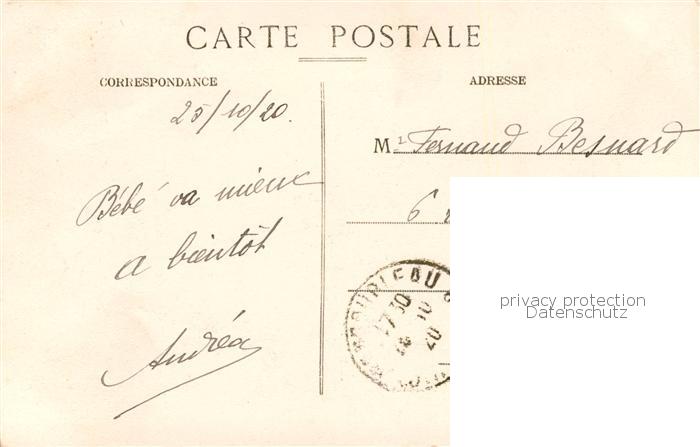 CARTE POSTALE
CORRESPONDANCE
ADRESSE
25/10/20.
Mr Fernand Besnard
Bébé va mieux
6
a bientôt
privacy protection
Datenschutz
Andréa
17 30
10
20